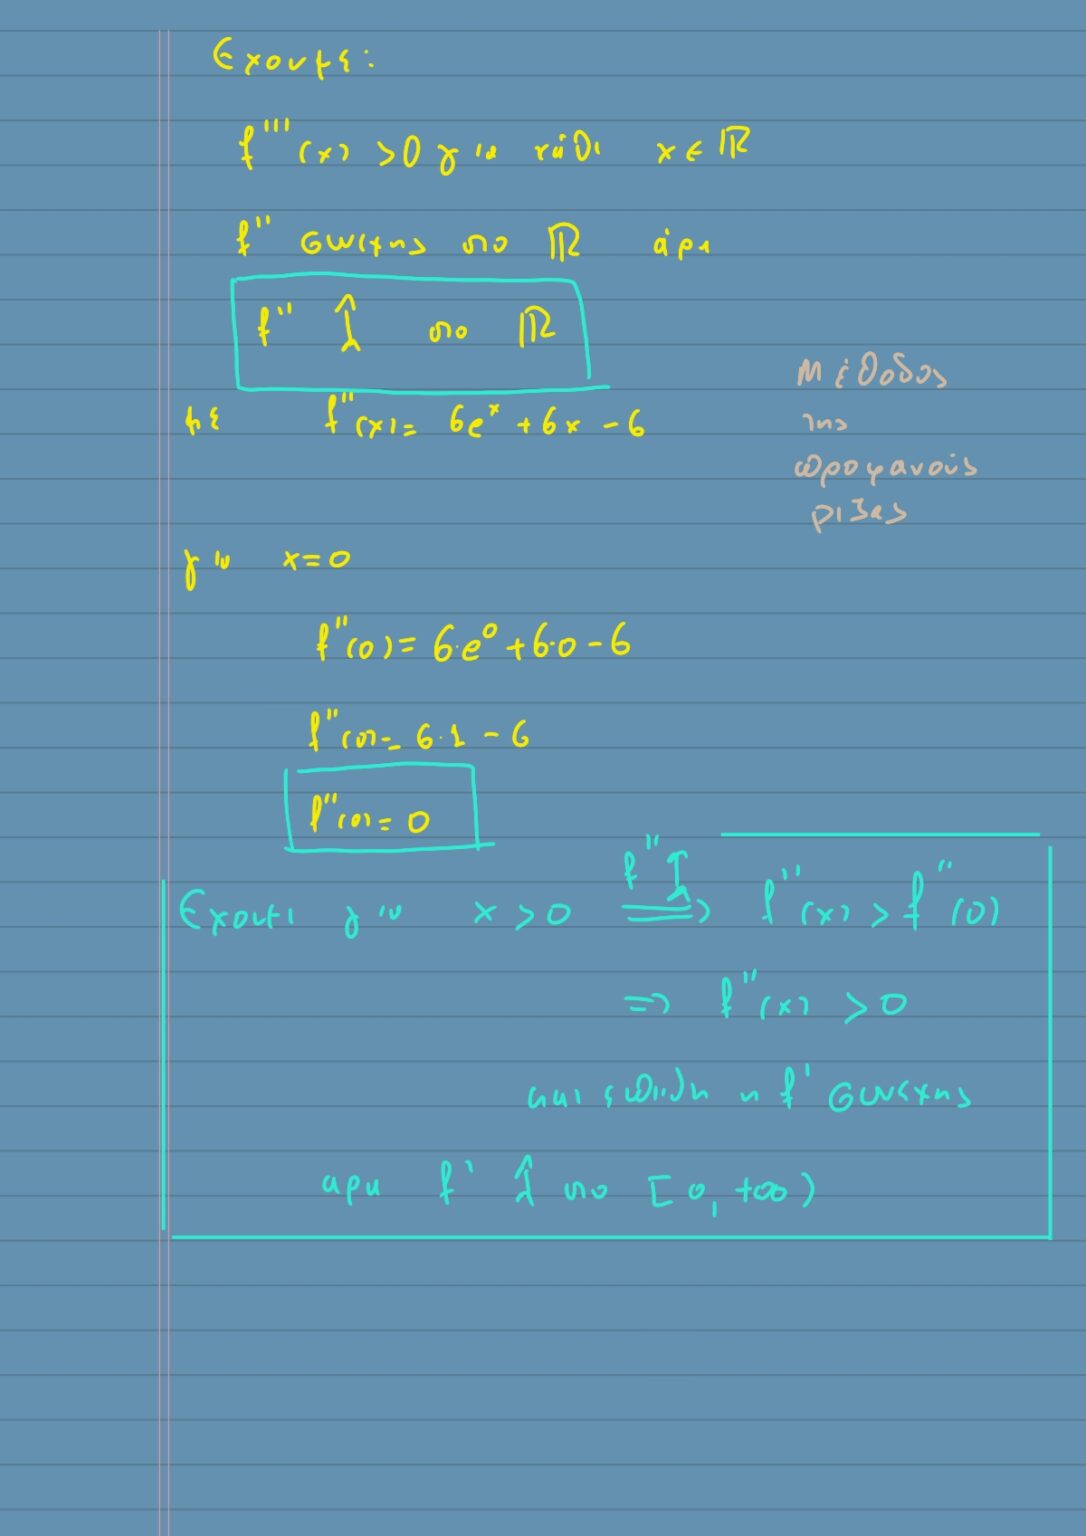 Έχουμε:
f'''(x) > 0 για κάθε x ∈ ℝ
f'' συνεχής στο ℝ άρα
f'' ↑ στο ℝ
με f''(x) = 6e^x + 6x - 6
Μέθοδος
της
προφανούς
ρίζας
για x = 0
f''(0) = 6·e^0 + 6·0 - 6
f''(0) = 6·1 - 6
f''(0) = 0
Έχουμε για x > 0 f''↑ ⟹ f''(x) > f''(0)
⟹ f''(x) > 0
και επειδή η f' συνεχής
αρα f' ↑ στο [0, +∞)